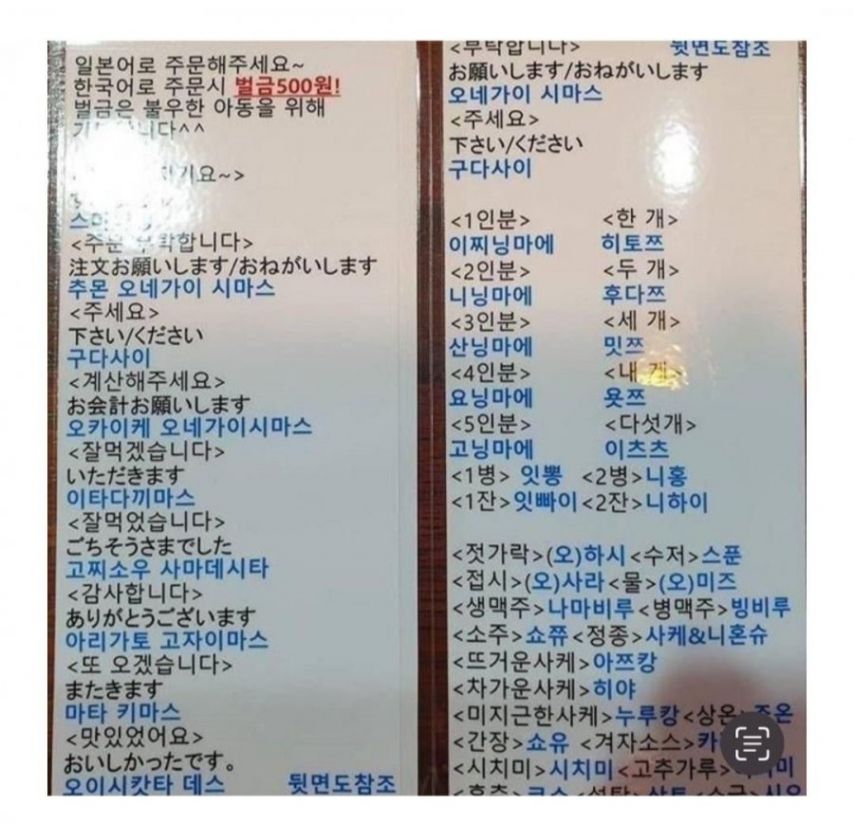 일본어로 주문해주세요~
한국어로 주문시 벌금500원!
벌금은 불우한 아동을 위해
<주문 부탁합니다>
注文お願いします/おねがいします
추몬 오네가이 시마스
<주세요>
下さい/ください
구다사이
<계산해주세요>
お会計お願いします
오카이케 오네가이시마스
<잘먹겠습니다>
いただきます
이타다끼마스
<잘먹었습니다>
ごちそうさまでした
고찌소우 사마데시타
<감사합니다>
ありがとうございます
아리가토 고자이마스
<또 오겠습니다>
またきます
마타 키마스
<맛있었어요>
おいしかったです。
오이시캇타 데스 뒷면도참조
<부탁합니다> 뒷면도참조
お願いします/おねがいします
오네가이 시마스
<주세요>
下さい/ください
구다사이
<1인분> <한 개>
이찌닝마에 히토쯔
<2인분> <두 개>
니닝마에 후다쯔
<3인분> <세 개>
산닝마에 밋쯔
<4인분> <내 개>
요닝마에 욧쯔
<5인분> <다섯개>
고닝마에 이츠츠
<1병> 잇뽕 <2병>니홍
<1잔>잇빠이<2잔>니하이
<젓가락>(오)하시<수저>스푼
<접시>(오)사라<물>(오)미즈
<생맥주>나마비루<병맥주>빙비루
<소주>쇼쮸<정종>사케&니혼슈
<뜨거운사케>아쯔캉
<차가운사케>히야
<미지근한사케>누루캉<상온>죠온
<간장>쇼유 <겨자소스>
<시치미>시치미<고추가루>